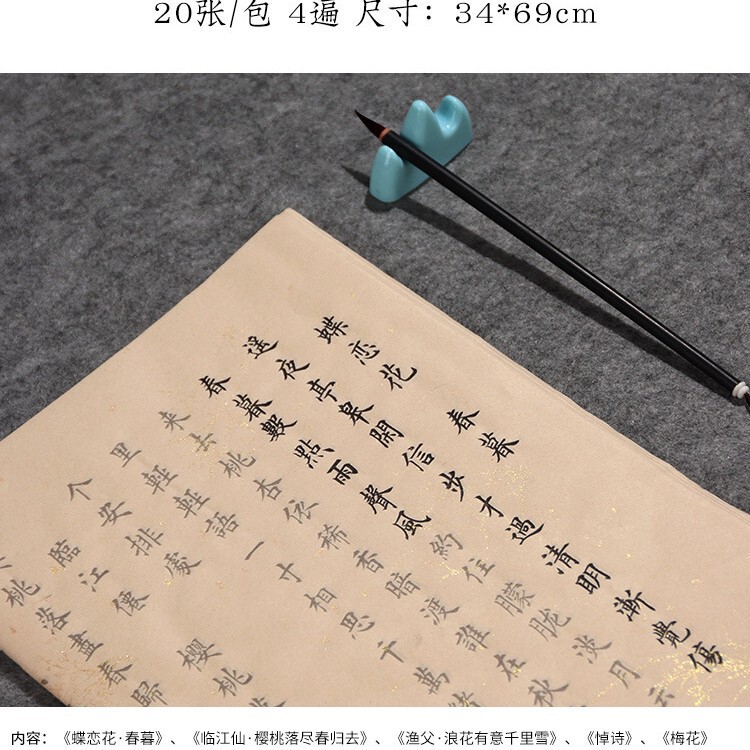 20张/包 4遍 尺寸：34*69cm
蝶恋花 春暮
遥夜亭皋開信步才過清明漸覺傷
春暮數點雨聲風約住朦胧淡月云
来去桃杏依稀香暗渡誰在秋
里輕輕語一寸相思千萬
个安排處
臨江僊 櫻桃
桃落盡春歸
内容：《蝶恋花·春暮》、《临江仙·樱桃落尽春归去》、《渔父·浪花有意千里雪》、《悼诗》、《梅花》